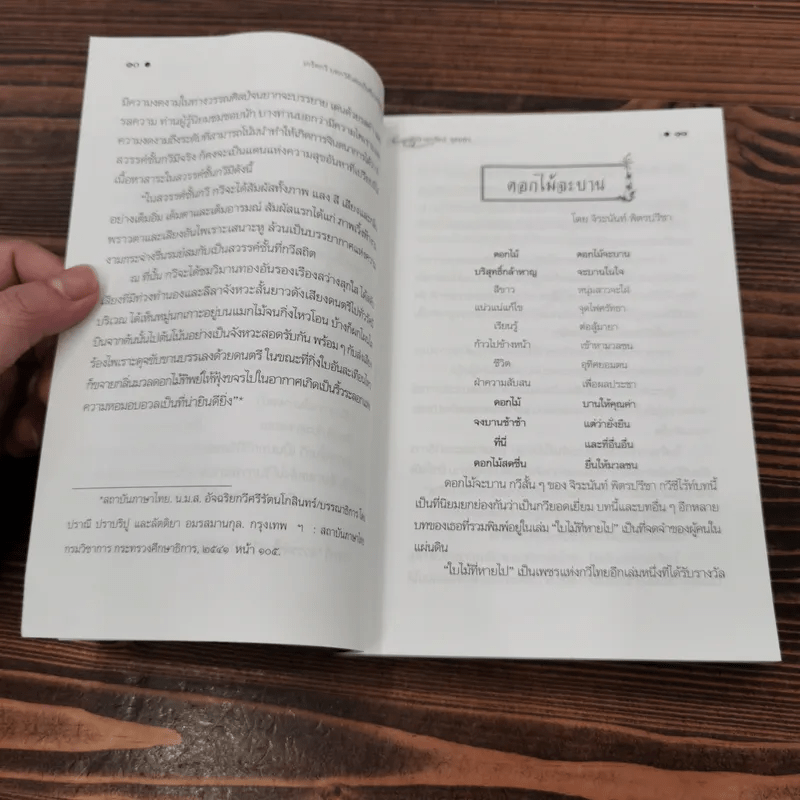 ๑๐ •
มีความงดงามในทางวรรณศิลป์จนยากจะบรรยาย เด่นด้วยรสคำ
รสความ ท่านผู้รู้นิยมชมชอบนัก บางท่านบอกว่ามีความไพเราะ
ความงดงามถึงระดับที่สามารถโน้มนำทำให้เกิดการจินตนาการได้ว่า
สวรรค์ชั้นกวีมีจริง ก็คงจะเป็นแดนแห่งความสุขอันหาที่เปรียบมิได้
เนื้อหาสาระในสวรรค์ชั้นกวีมีดังนี้
"ในสวรรค์ชั้นกวี กวีจะได้สัมผัสทั้งภาพ แสง สี เสียง
อย่างเต็มอิ่ม เต็มตาและเต็มอารมณ์ สัมผัสแรกได้แก่ ภาพ
พราวตาและเสียงอันไพเราะเสนาะหู ล้วนเป็นบรรยากาศแห่งความ
งามกระจ่างรื่นรมย์สมกับเป็นสวรรค์ชั้นที่กวีสถิต
ณ ที่นั้น กวีจะได้ชมวิมานทองอันรองเรืองสว่างสุกใส
เสียงที่มีท่วงทำนองและลีลาจังหวะสั้นยาวดังเสียงดนตรี
บริเวณ ได้เห็นหมู่นกเกาะอยู่บนแมกไม้จนกิ่งไหวโอน บ้างก็ผกโผ
บินจากต้นนั้นไปต้นโน้นอย่างเป็นจังหวะสอดรับกัน พร้อมๆ กับส่งเสียง
ร้องไพเราะดุจขับขานบรรเลงด้วยดนตรี ในขณะที่กิ่งใบอันละเอียด
ก็ขจายกลิ่นมวลดอกไม้ทิพย์ให้ฟุ้งขจรไปในอากาศเกิดเป็นริ้วระลอก
ความหอมอบอวลเป็นที่น่ายินดียิ่ง"*
*สถาบันภาษาไทย. น.ม.ส. อัจฉริยกวีศรีรัตนโกสินทร์/บรรณาธิการ โดย
ปราณี ปราบริปู และลัดดียา อมรสมานกุล. กรุงเทพ ฯ : สถาบันภาษาไทย
กรมวิชาการ กระทรวงศึกษาธิการ, ๒๕๔๑ หน้า ๑๐๕.
• ๑๑
ดอกไม้จะบาน
โดย จิระนันท์ พิตรปรีชา
ดอกไม้ ดอกไม้จะบาน
บริสุทธิ์กล้าหาญ จะบานในใจ
สีขาว หนุ่มสาวจะใฝ่
แน่วแน่แก้ไข จุดไฟศรัทธา
เรียนรู้ ต่อสู้มายา
ก้าวไปข้างหน้า เข้าหามวลชน
ชีวิต อุทิศยอมตน
ฝ่าความสับสน เพื่อผลประชา
ดอกไม้ บานให้คุณค่า
จงบานช้าช้า แต่ว่ายั่งยืน
ที่นี่ และที่อื่นอื่น
ดอกไม้สดชื่น ยื่นให้มวลชน
ดอกไม้จะบาน กวีสั้น ๆ ของ จิระนันท์ พิตรปรีชา กวีซีไร้ท์บทนี้
เป็นที่นิยมยกย่องกันว่าเป็นกวียอดเยี่ยม บทนี้และบทอื่น ๆ อีกหลาย
บทของเธอที่รวมพิมพ์อยู่ในเล่ม "ใบไม้ที่หายไป" เป็นที่จดจำของผู้คนใน
แผ่นดิน
"ใบไม้ที่หายไป" เป็นเพชรแห่งกวีไทยอีกเล่มหนึ่งที่ได้รับรางวัล